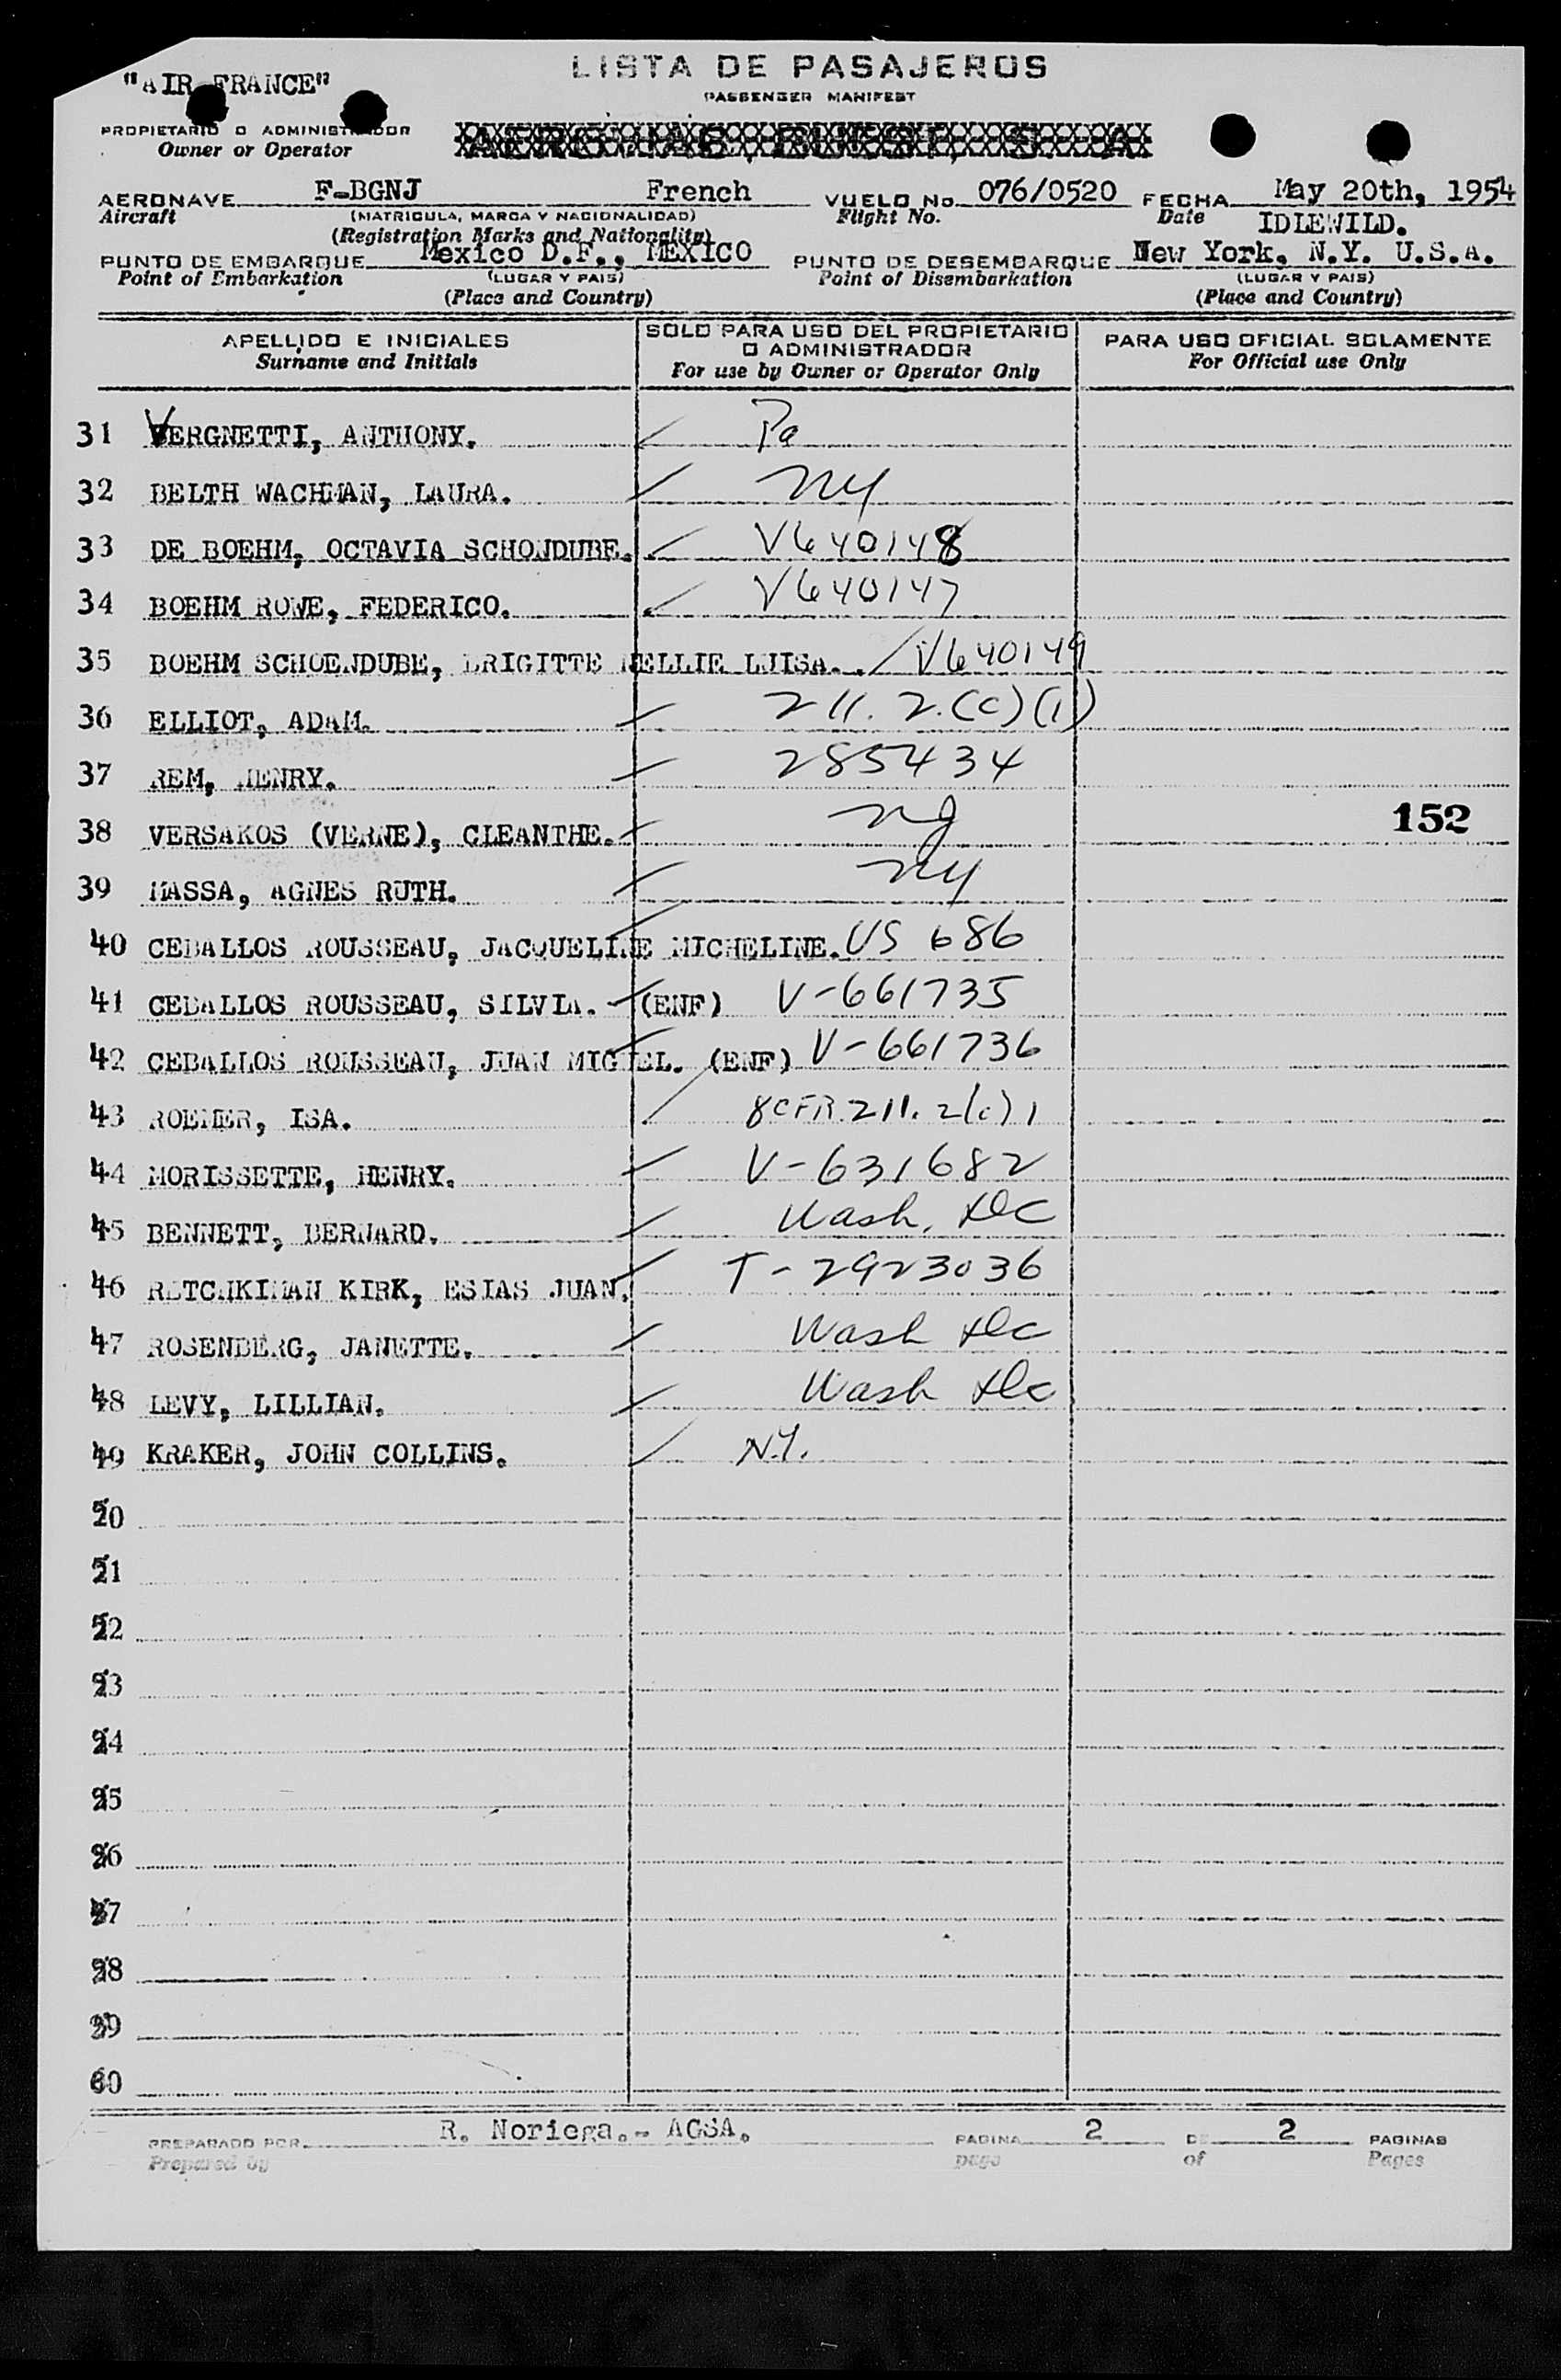 "AIR FRANCE"
LISTA DE PASAJEROS
PASSENGER MANIFEST
PROPIETARIO O ADMINISTRADOR
Owner or Operator
AERONAVE F-BGNJ French VUELO No. 076/0520 FECHA May 20th, 1954
Aircraft (MATRICULA, MARCA Y NACIONALIDAD) Flight No. Date IDLEWILD.
(Registration Marks and Nationality)
PUNTO DE EMBARQUE Mexico D.F., MEXICO PUNTO DE DESEMBARQUE New York, N.Y. U.S.A.
Point of Embarkation (LUGAR Y PAIS) Point of Disembarkation (LUGAR Y PAIS)
(Place and Country) (Place and Country)
APELLIDO E INICIALES SOLO PARA USO DEL PROPIETARIO PARA USO OFICIAL SOLAMENTE
Surname and Initials O ADMINISTRADOR For Official use Only
For use by Owner or Operator Only
31 VERGNETTI, ANTHONY. Pa
32 BELTH WACHMAN, LAURA. NY
33 DE BOEHM, OCTAVIA SCHONDUBE. V640148
34 BOEHM ROWE, FEDERICO. V640147
35 BOEHM SCHOENDUBE, BRIGITTE NELLIE LUISA. V640149
36 ELLIOT, ADAM. 211.2.(c)(1)
37 REM, HENRY. 285434
38 VERSAKOS (VERNE), CLEANTHE. NJ 152
39 MASSA, AGNES RUTH. NY
40 CEBALLOS ROUSSEAU, JACQUELINE MICHELINE. US 686
41 CEBALLOS ROUSSEAU, SILVIA. - (ENF) V-661735
42 CEBALLOS ROUSSEAU, JUAN MIGUEL. (ENF) V-661736
43 ROEMER, ISA. 8CFR.211.2(c)1
44 MORISSETTE, HENRY. V-631682
45 BENNETT, BERNARD. Wash, DC
46 RETCHKIMAN KIRK, ESIAS JUAN. T-2923036
47 ROSENBERG, JANETTE. Wash DC
48 LEVY, LILLIAN. Wash DC
49 KRAKER, JOHN COLLINS. N.Y.
50
51
52
53
54
55
56
57
58
59
60
PREPARADO POR R. Noriega.- AGSA. PAGINA 2 DE 2 PAGINAS
Prepared by page of Pages